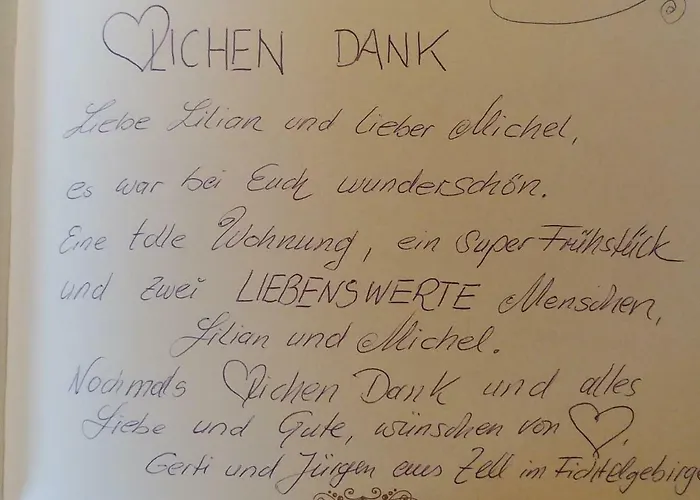 ♡LICHEN DANK
Liebe Lilian und lieber Michel,
es war bei Euch wunderschön.
Eine tolle Wohnung, ein super Frühstück
und zwei LIEBENSWERTE Menschen,
Lilian und Michel.
Nochmals ♡lichen Dank und alles
Liebe und Gute, wünschen von ♡,
Gerti und Jürgen aus Zell im Fichtelgebirge